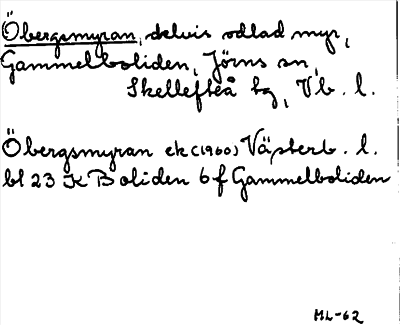 Öbergsmyran, delvis odlad myr,
Gammelboliden, Jörns sn,
Skellefteå tg, Vb. l.
Öbergsmyran ek (1960) Västerb. l.
bl 23 K Boliden 6 f Gammelboliden
ML-62